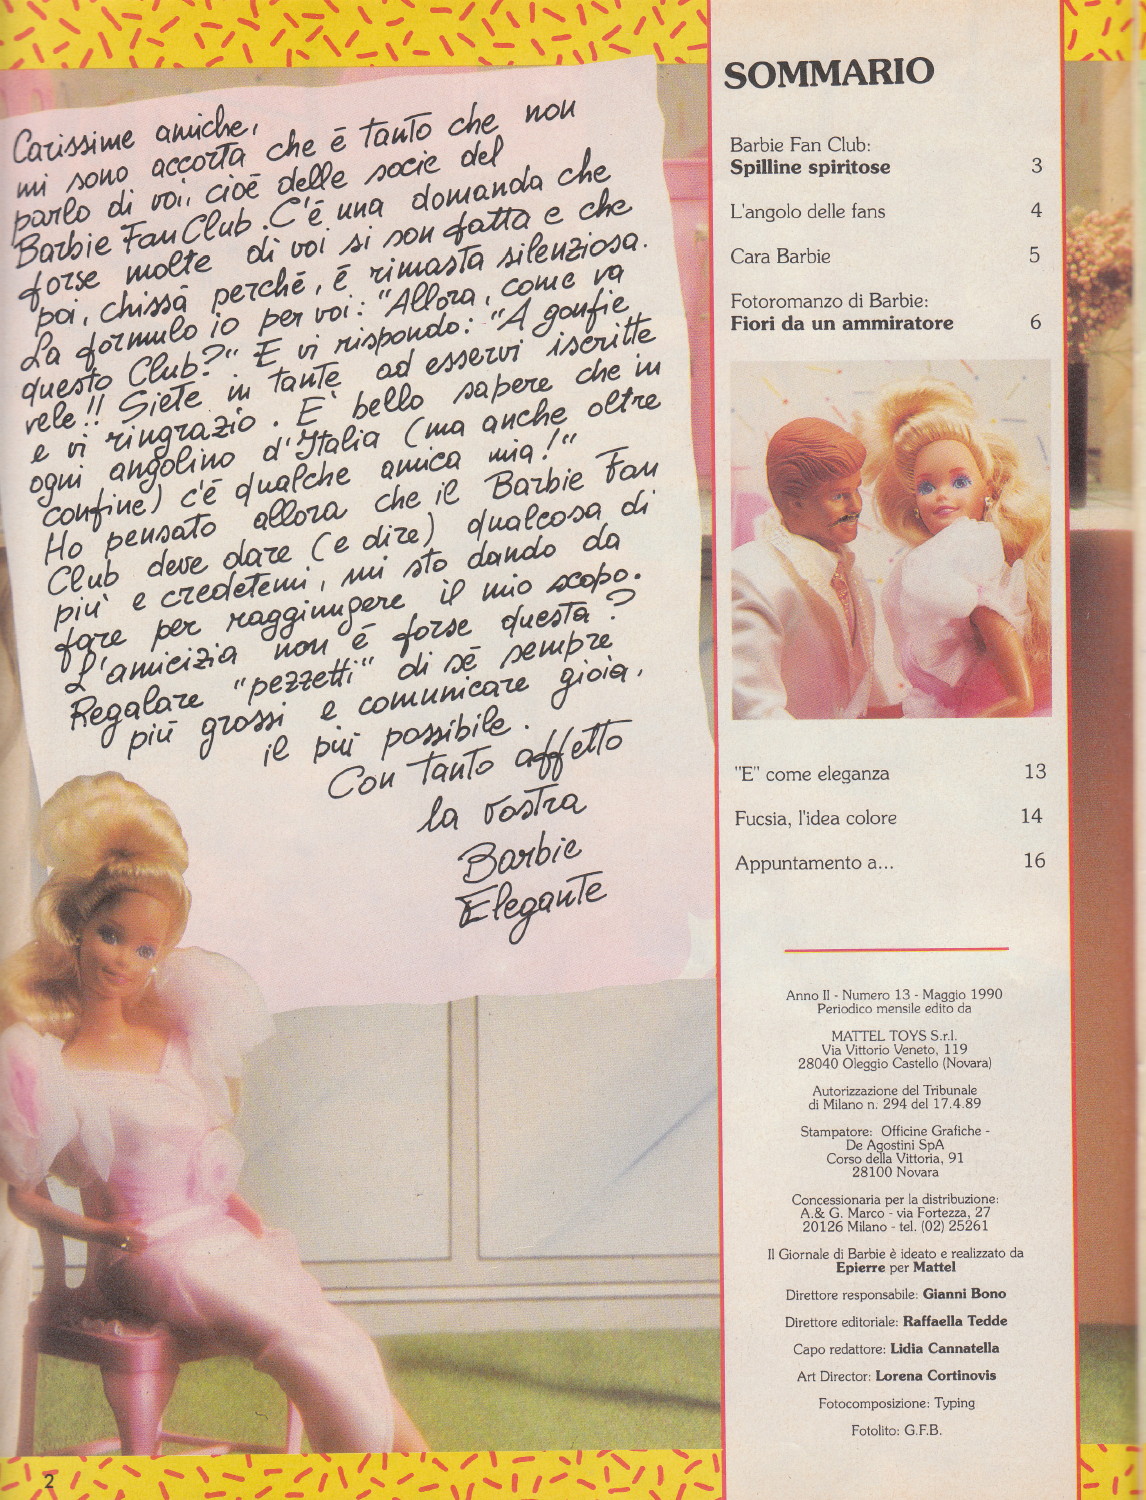 Carissime amiche,
mi sono accorta che è tanto che non
parlo di voi, cioè delle socie del
Barbie Fan Club. C'è una domanda che
forse molte di voi si son fatta e che
poi, chissà perché, è rimasta silenziosa.
La formulo io per voi: "Allora, come va
questo Club?" E vi rispondo: "A gonfie
vele!! Siete in tante ad esservi iscritte
e vi ringrazio. E' bello sapere che in
ogni angolino d'Italia (ma anche oltre
confine) c'è qualche amica mia!"
Ho pensato allora che il Barbie Fan
Club deve dare (e dire) qualcosa di
più e credetemi, mi sto dando da
fare per raggiungere il mio scopo.
L'amicizia non è forse questa?
Regalare "pezzetti" di sé sempre
più grossi e comunicare gioia,
il più possibile.
Con tanto affetto
la vostra
Barbie
Elegante
2
SOMMARIO
Barbie Fan Club:
Spilline spiritose 3
L'angolo delle fans 4
Cara Barbie 5
Fotoromanzo di Barbie:
Fiori da un ammiratore 6
"E" come eleganza 13
Fucsia, l'idea colore 14
Appuntamento a... 16
Anno II - Numero 13 - Maggio 1990
Periodico mensile edito da
MATTEL TOYS S.r.l.
Via Vittorio Veneto, 119
28040 Oleggio Castello (Novara)
Autorizzazione del Tribunale
di Milano n. 294 del 17.4.89
Stampatore: Officine Grafiche -
De Agostini SpA
Corso della Vittoria, 91
28100 Novara
Concessionaria per la distribuzione:
A.& G. Marco - via Fortezza, 27
20126 Milano - tel. (02) 25261
Il Giornale di Barbie è ideato e realizzato da
Epierre per Mattel
Direttore responsabile: Gianni Bono
Direttore editoriale: Raffaella Tedde
Capo redattore: Lidia Cannatella
Art Director: Lorena Cortinovis
Fotocomposizione: Typing
Fotolito: G.F.B.